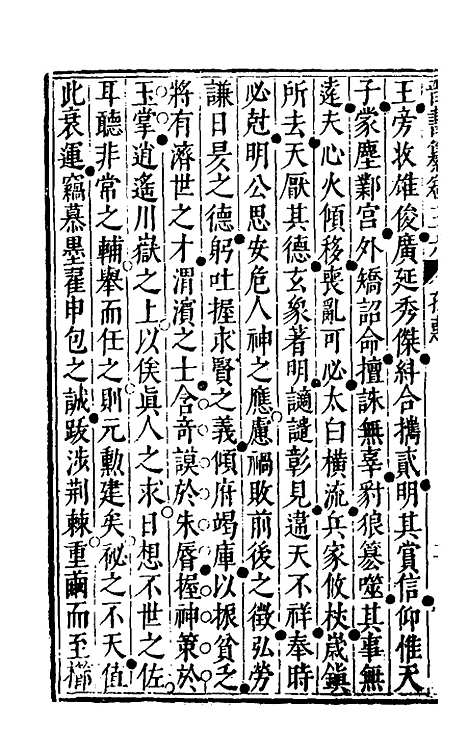 王旁收雄俊廣延秀傑糾合攜貳明其賞信仰惟天
子蒙塵鄴宮外矯詔命擅誅無辜豺狼簒噬其事無
遠夫心火傾移喪亂可必太白橫流兵家攸杖嵗鎭
所去天厭其德玄象著明謫譴彰見違天不祥奉時
必尅明公思安危人神之應慮禍敗前後之徵弘勞
謙日昃之德躬吐握求賢之義傾府竭庫以振貧乏
將有濟世之才渭濱之士含奇謨於朱脣握神策於
玉掌逍遙川嶽之上以俟眞人之求目想不世之佐
耳聽非常之輔舉而任之則元勲建矣祕之不天值
此衰運竊慕墨翟申包之誠跋涉荆棘重繭而至櫛